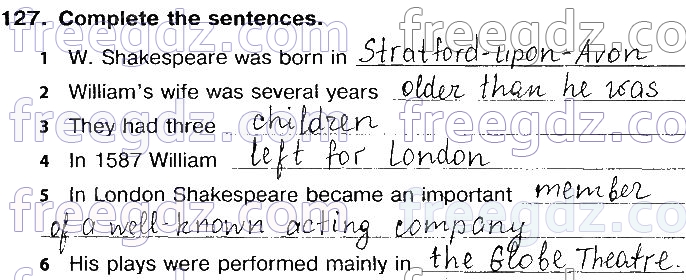 127. Complete the sentences.
1 W. Shakespeare was born in Stratford-upon-Avon
2 William's wife was several years older than he was
3 They had three children
4 In 1587 William left for London
5 In London Shakespeare became an important member
of a well-known acting company
6 His plays were performed mainly in the Globe Theatre.
freegdz.com freegdz.com
freegdz.com freegdz.com
freegdz.com freegdz.com
freegdz.com freegdz.com
freegdz.com freegdz.com